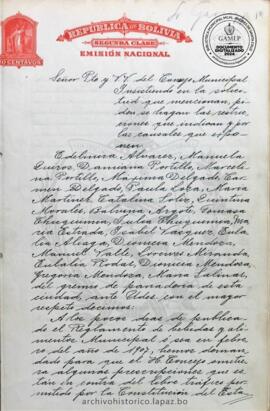 REPÚBLICA DE BOLIVIA
SEGUNDA CLASE
EMISIÓN NACIONAL
CENTAVOS
GAMLP
DOCUMENTO
DIGITALIZADO
2024
Señor Pte y V.V. del Concejo Municipal
Insistiendo en la solici-
tud que mencionan, pi-
den se hagan las correc-
ciones que indican y por
las causales que expo-
nen.
Edelmira Alvarez, Manuela
Damiana Portillo, Marceli
Portillo, Máxima Delgado, Car-
men Delgado, Paula Loza, María
Martinez, Catalina Soliz, Quintina
Morales, Balvina Argote, Tomasa
María
Estrada, Isabel Vasquez, Eula-
lia Aliaga, Dionicia Mendoza,
Manuel Valle, Miranda,
Eulalia Rodas, Dionicia Mendoza
Gregoria Mendoza, María Salinas,
del gremio de panadería de esta
ciudad, ante Uds. con el mayor
respeto decimos:
A los pocos días de publica-
do el Reglamento de bebidas y ali-
mentos Municipal ó sea en febre-
ro del año de 1909, hemos deman-
dado para que el H. Concejo omitie-
ra algunas prescripciones que es-
tán en contra del libre tráfico per-
mitido por la Constitución del Esta-
archivohistorico.lapaz.bo